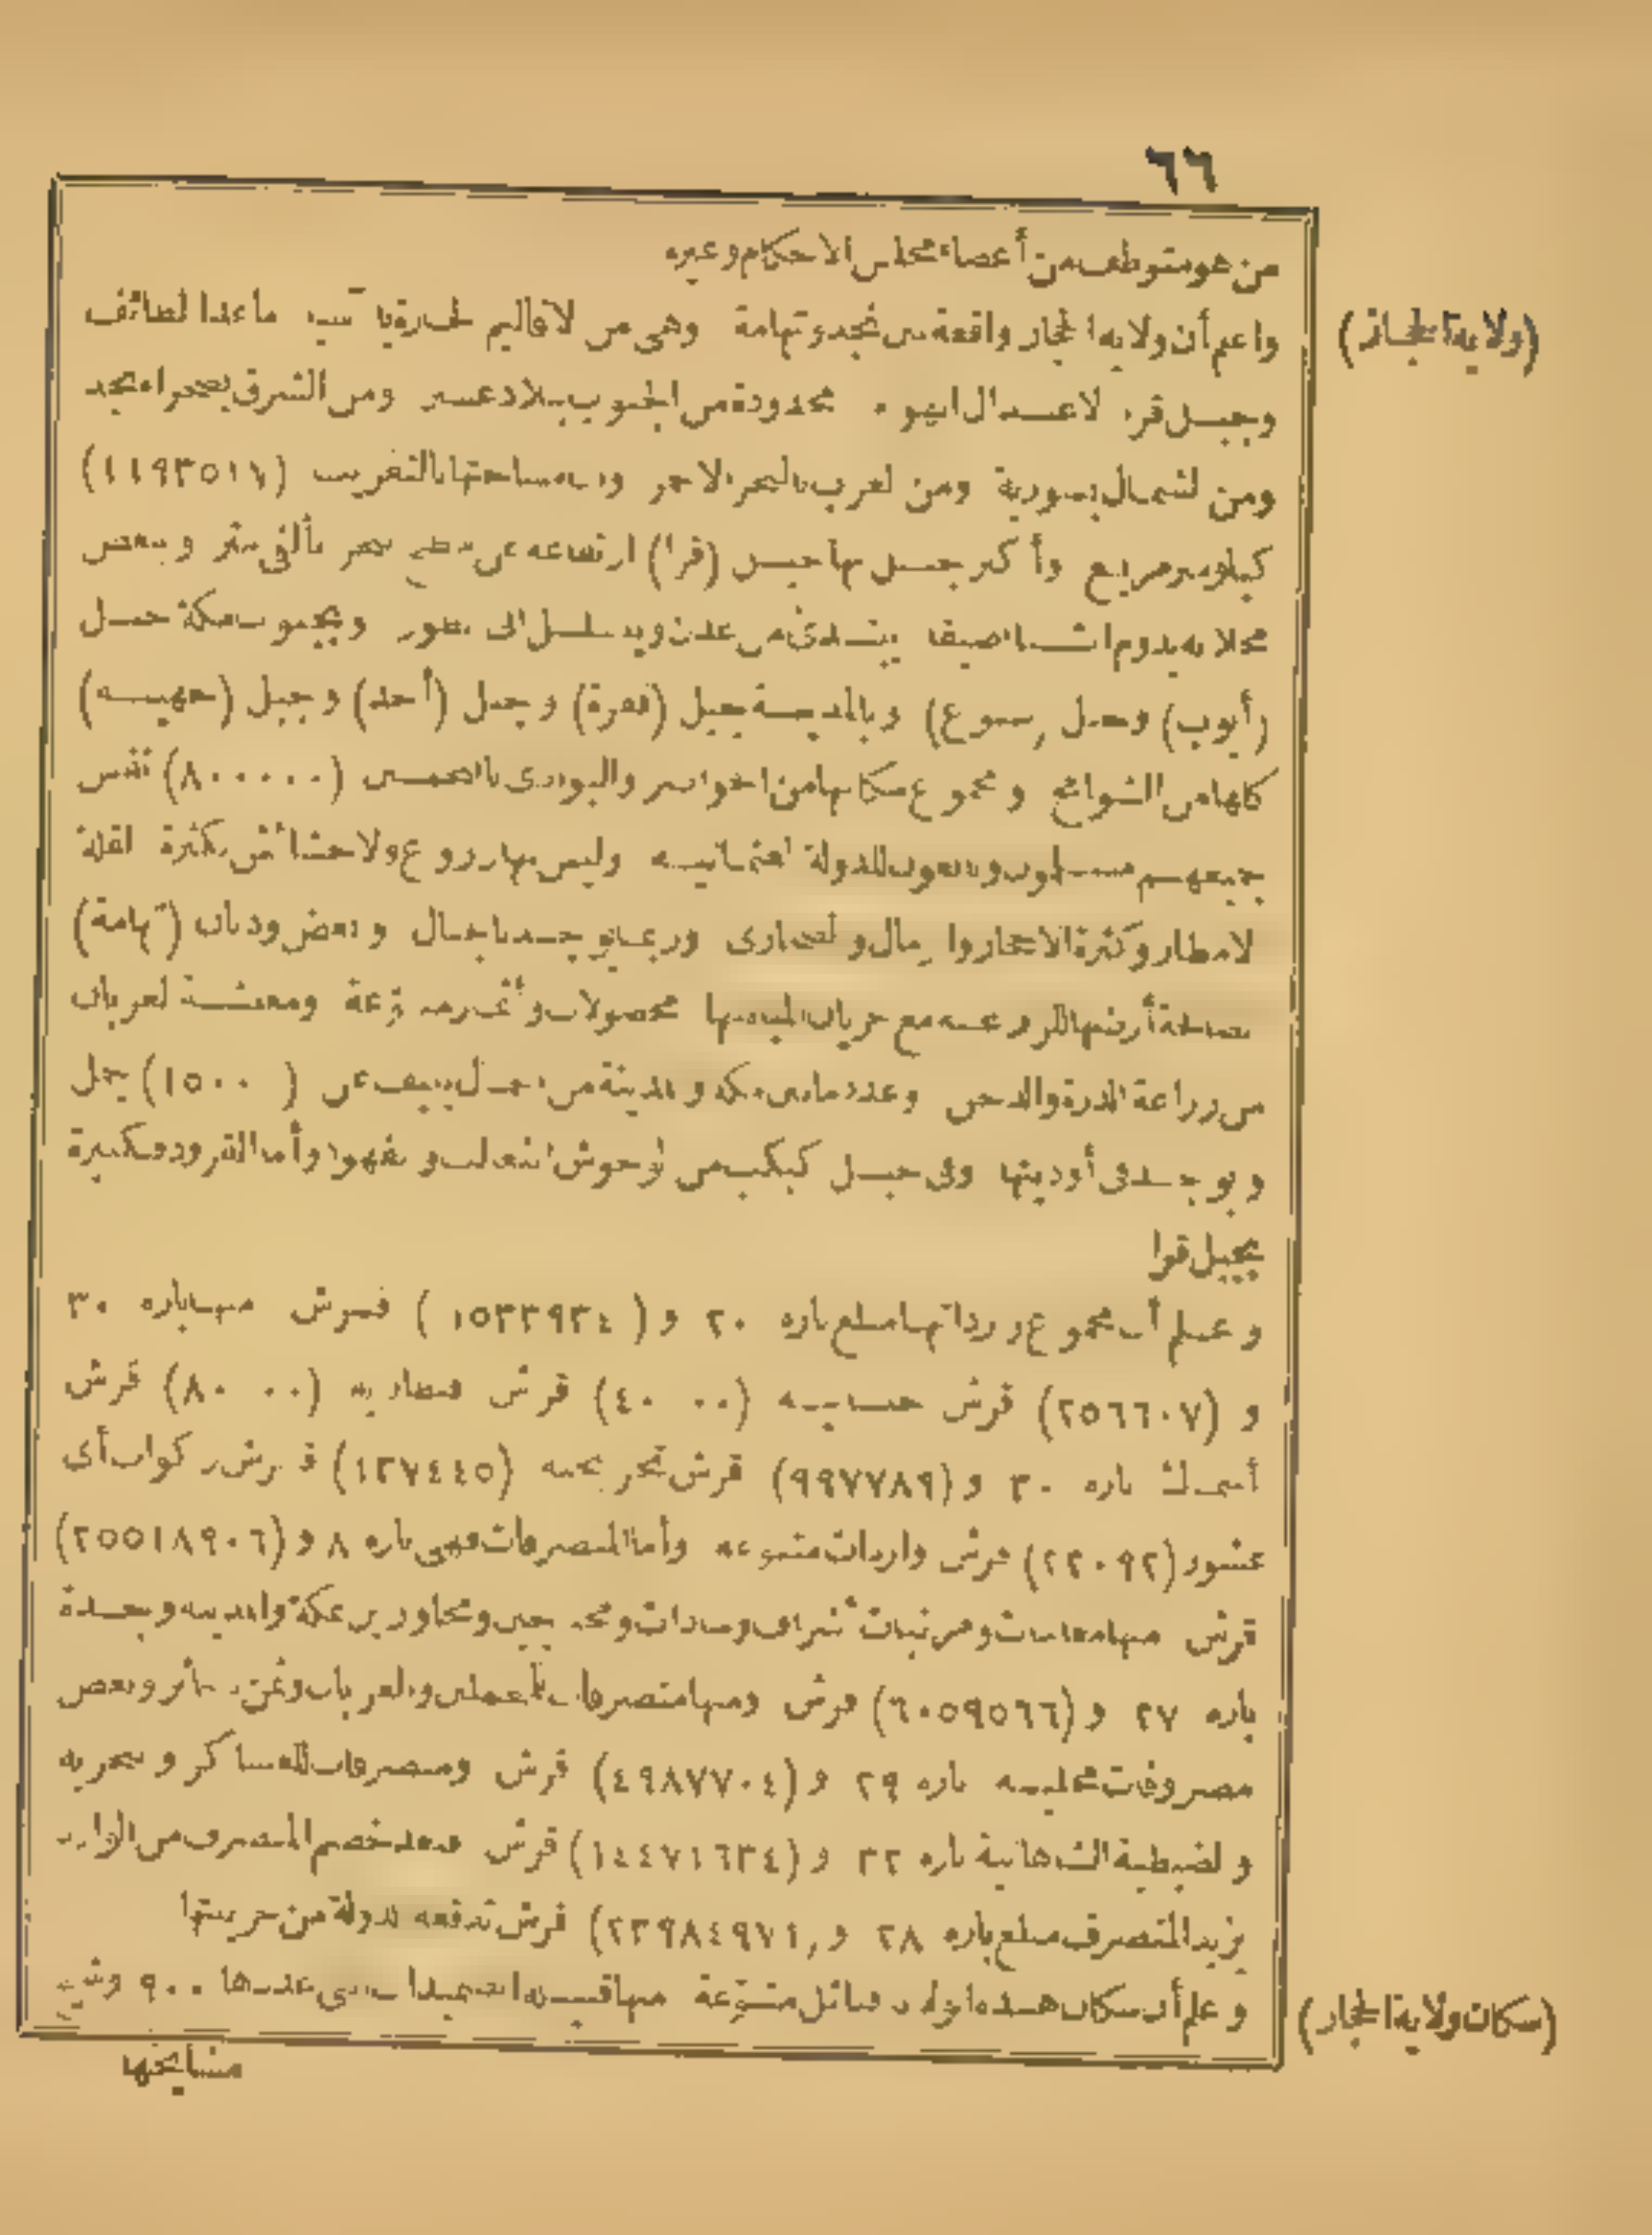 ٦٦
من هو متوظف من أعضاء مجلس الاحكام وغيره
(ولاية الحجاز)
واعلم أن ولاية الحجاز واقعة بين نجد وتهامة وهى من الاقاليم الحارة ما عدا الطائف
وجبل قرا لاعتدال الهواء محدودة من الجنوب ببلاد عسير ومن الشرق بصحراء نجد
ومن الشمال بسورية ومن الغرب بالبحر الاحمر ومساحتها بالتقريب (١١٩٣٥١٧)
كيلومتر مربع وأكبر جبل بها جبل (قرا) ارتفاعه عن سطح البحر بألفى متر وبعض
محلاته يدوم صيفا يبتدئ من عدن ويتسلسل الى الطور وبجنوب مكة جبل
(أيوب) وجبل وبالمدينة جبل (فقرة) وجبل (أحد) وجبل (جهينة)
كلها من الشوامخ ومجموع سكانها من الحواضر والبوادى بالتخمين (٨٠٠٠٠٠) نفس
جميعهم مسلمون وتابعون للدولة العثمانية وليس بها زروع ولا حشائش بكثرة لقلة
الامطار وكثرة الاحجار والرمال والصحارى وربما يوجد بالجبال وبعض وديان (تهامة)
الصالحة أرضها للزراعة مع جريان المياه بها محصولات متنوعة ومعيشة العربان
من زراعة الذرة والدخن وعدد ما بين مكة والمدينة من الجبال ينيف عن (١٥٠٠) جبل
ويوجد فى أوديتها وفى جبل كبكب من الوحوش الثعلب والفهود وأما القرود فبكثيرة
بجبل قرا
واعلم أن مجموع وارداتها مبلغ باره ٢٠ و (١٥٣٣٩٣٤) قرش منها باره ٣٠
و (٢٥٦٦٠٧) قرش حسابيه (٤٠٠٠) قرش قنطاريه (٨٠٠٠) قرش
أسماك باره ٣٠ و (٩٩٧٧٨٩) قرش (١٢٧٤٤٥) قرش زكوات أى
عشور (٢٢٠٩٢) قرش واردات متنوعه وأما المتصرفات فهى باره ٨ و (٢٥٥١٨٩٠٦)
قرش منها معاشات ومرتبات أشراف وسادات ومجاورين بمكة والمدينه وبجدة
باره ٢٧ و (٦٠٥٩٥٦٦) قرش ومنها متصرفات والعربان وثمن ذخائر وبعض
مصروفات محليه باره ٢٩ و (٤٩٨٧٧٠٤) قرش ومتصرفات للعساكر وبحريه
والضبطية الشاهانية باره ٣٢ و (١٤٤٧١٦٣٤) قرش فبعد خصم المتصرف من الوارد
يزيد المتصرف مبلغ باره ٢٨ و (٢٣٩٨٤٩٧١) قرش تدفعه الدولة من خزينتها
(سكان ولاية الحجاز)
واعلم أن سكان هذه الولاية قبائل متنوعة منها قبيلة عددها ٩٠٠ وشيخ
مشايخها